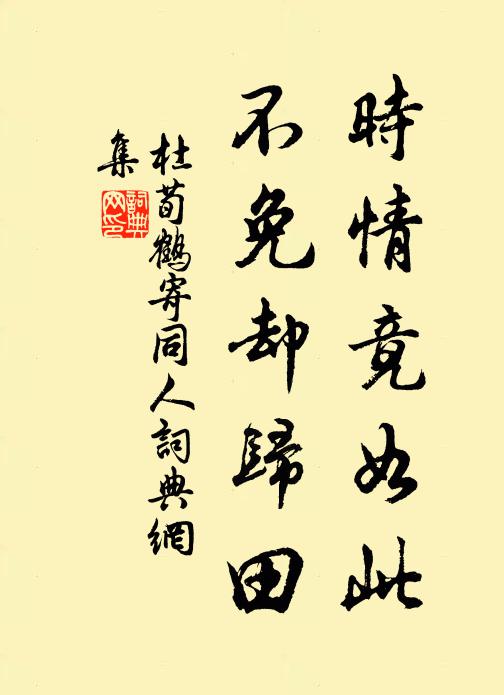 時情竟如此
不免却歸田
杜荀鶴寄同人詞典網
集
詞典
网印